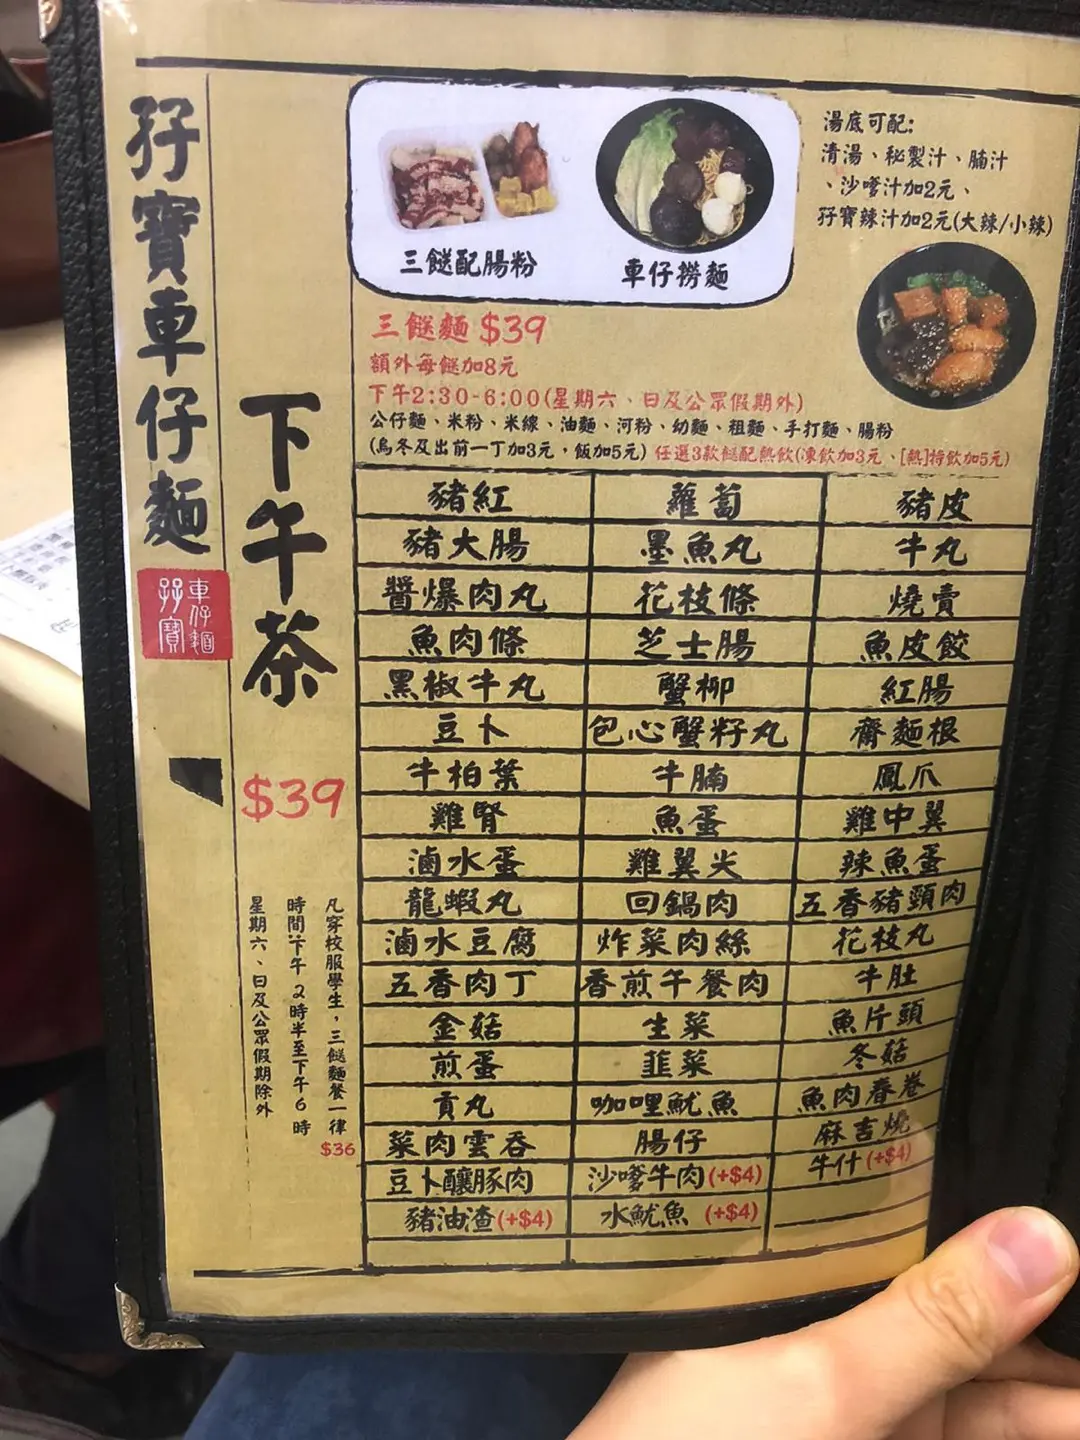 孖寶車仔麵
孖寶
車仔麵
下午茶
$39
凡穿校服學生，三餸麵餐一律$36
時間:下午2時半至下午6時
星期六、日及公眾假期除外
三餸配腸粉
車仔撈麵
湯底可配:
清湯、秘製汁、腩汁
、沙嗲汁加2元、
孖寶辣汁加2元(大辣/小辣)
三餸麵 $39
額外每餸加8元
下午2:30-6:00(星期六、日及公眾假期外)
公仔麵、米粉、米線、油麵、河粉、幼麵、粗麵、手打麵、腸粉
(烏冬及出前一丁加3元，飯加5元) 任選3款餸配熱飲(凍飲加3元、[熱]特飲加5元)
豬紅 蘿蔔 豬皮
豬大腸 墨魚丸 牛丸
醬爆肉丸 花枝條 燒賣
魚肉條 芝士腸 魚皮餃
黑椒牛丸 蟹柳 紅腸
豆卜 包心蟹籽丸 齋麵根
牛柏葉 牛腩 鳳爪
雞腎 魚蛋 雞中翼
滷水蛋 雞翼尖 辣魚蛋
龍蝦丸 回鍋肉 五香豬頸肉
滷水豆腐 炸菜肉絲 花枝丸
五香肉丁 香煎午餐肉 牛肚
金菇 生菜 魚片頭
煎蛋 韮菜 冬菇
貢丸 咖哩魷魚 魚肉春卷
菜肉雲吞 腸仔 麻吉燒
豆卜釀豚肉 沙嗲牛肉(+$4) 牛什(+$4)
豬油渣(+$4) 水魷魚 (+$4)